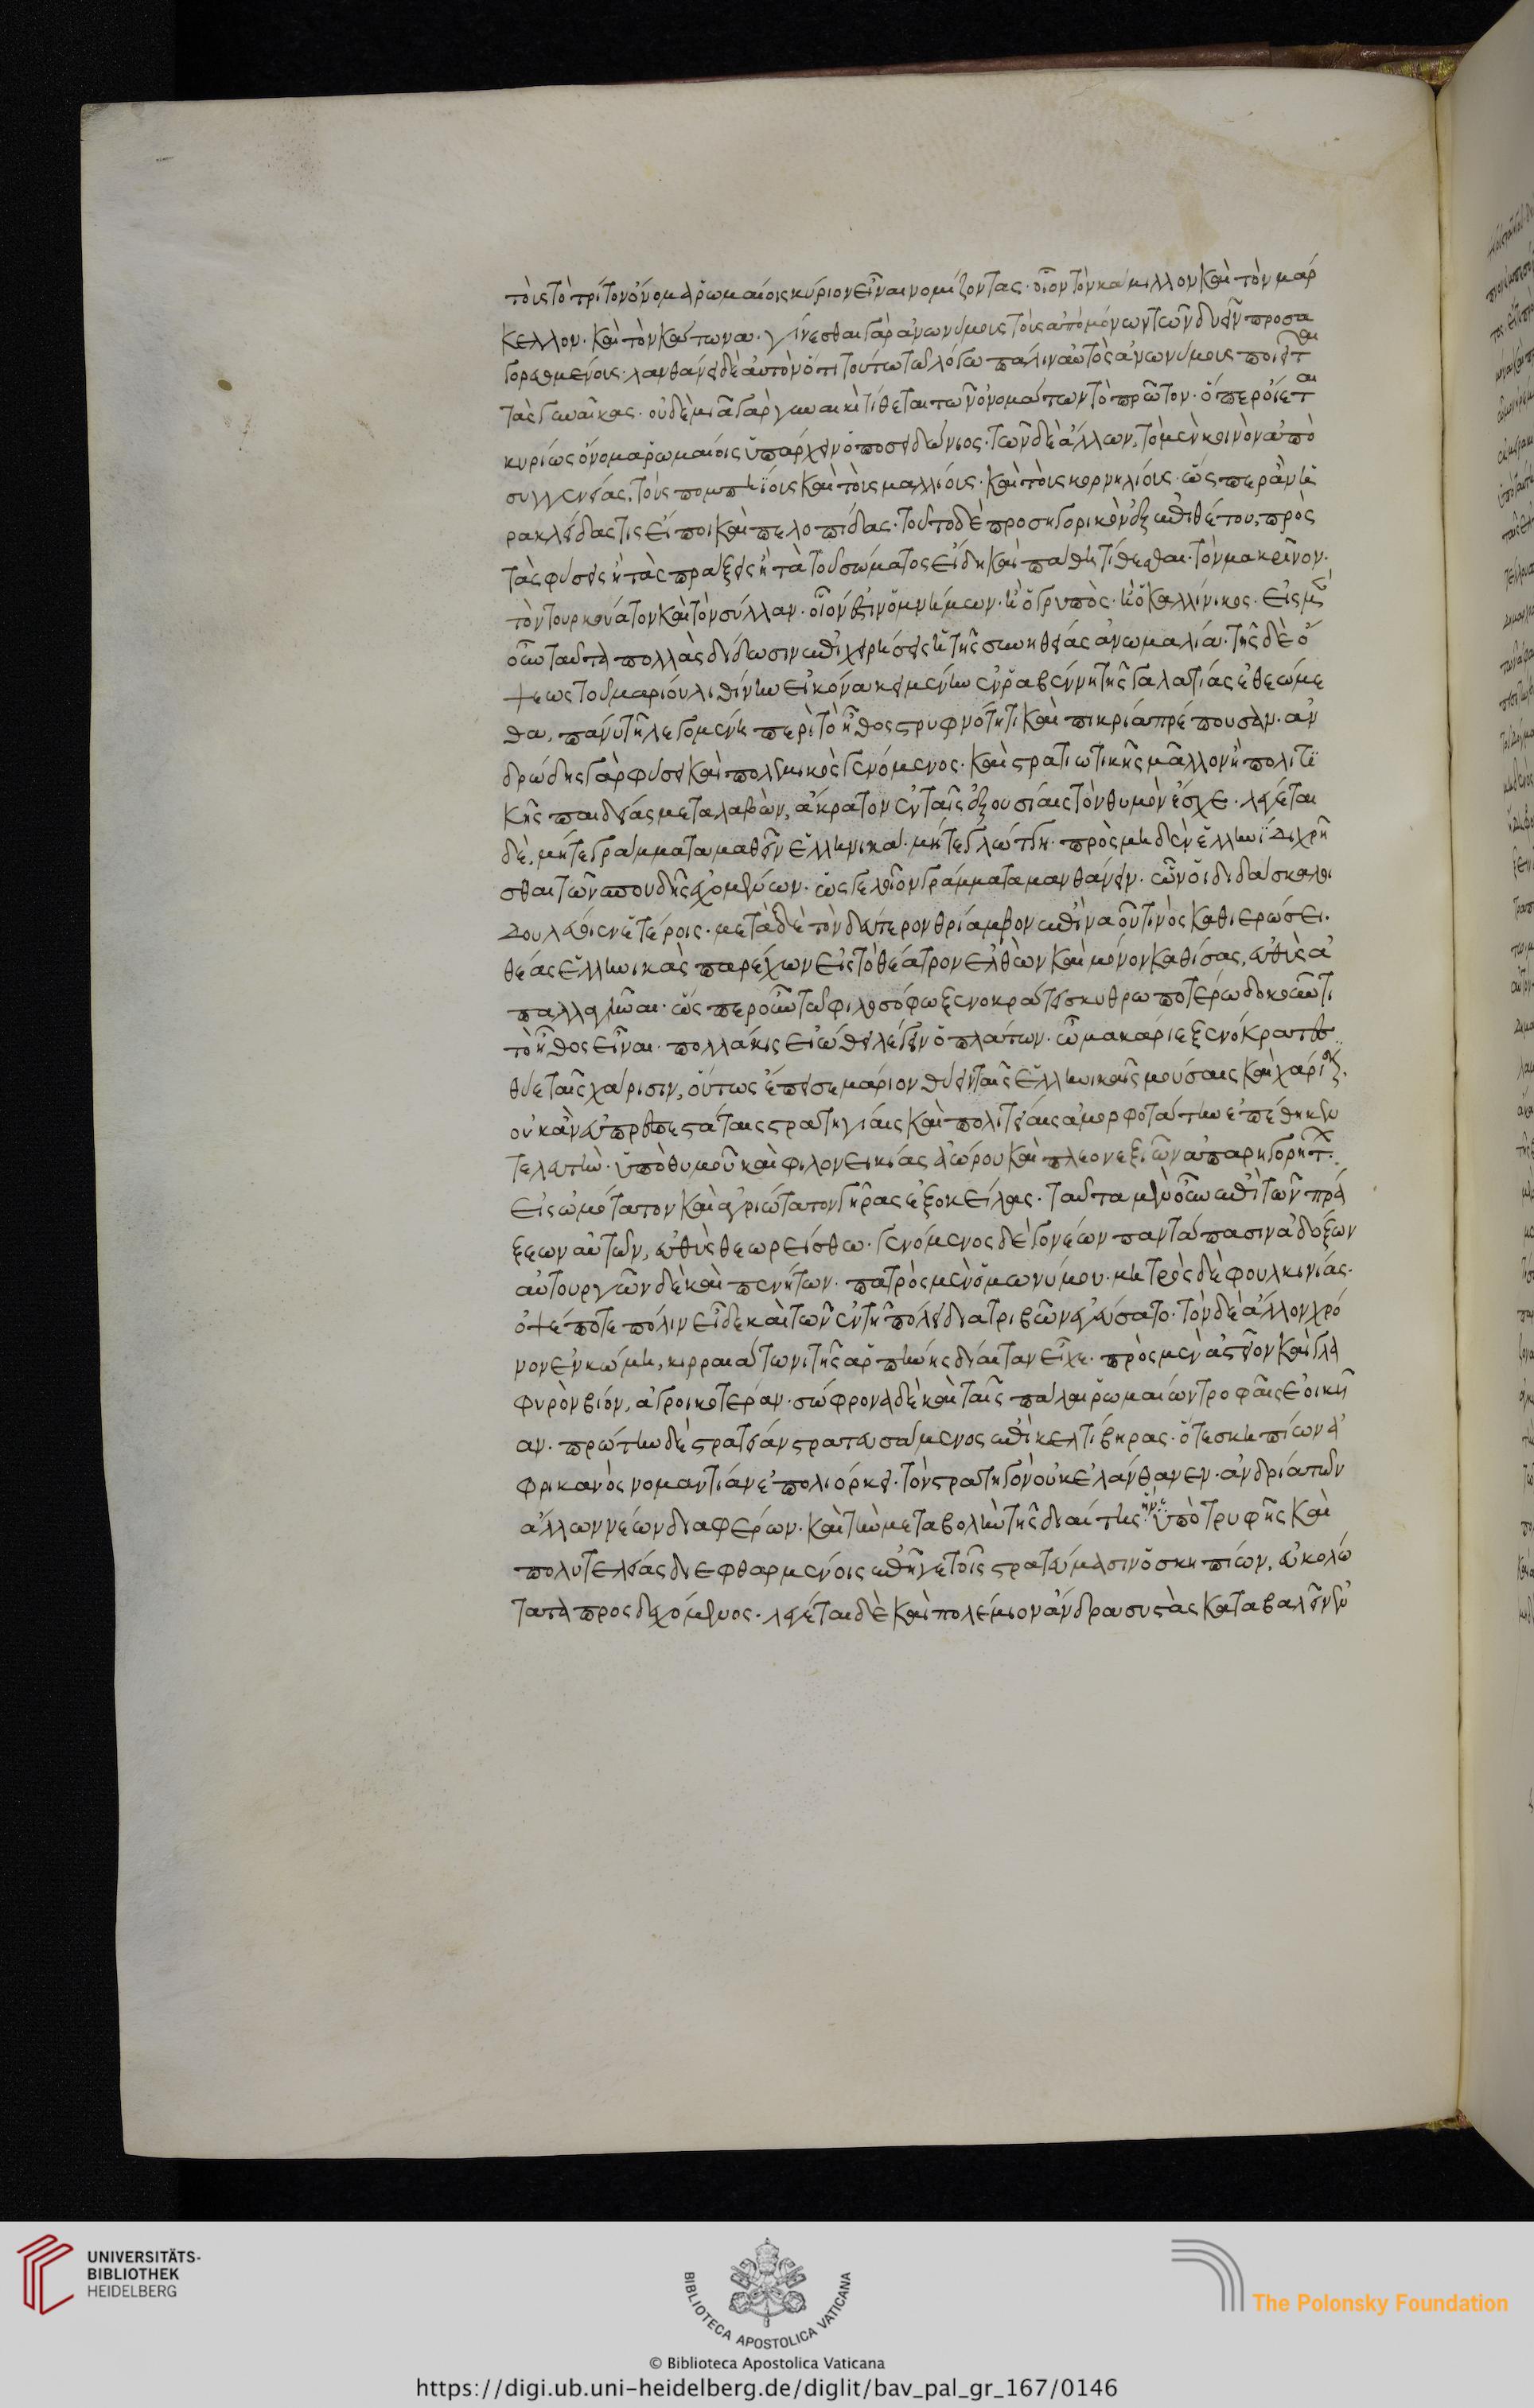 τοῖς τὸ τρίτον ὄνομα ῥωμαίοις κύριον εἶναι νομίζοντας· οἷον τὸν κάμιλλον καὶ τὸν μάρ
κελλον· καὶ τὸν κάτωνα· γίνεσθαι γὰρ ἀνωνύμους τοὺς ἀπὸ μόνων τῶν δυεῖν προσα
γορευομένους· λανθάνει δὲ αὐτὸν ὅτι τούτω τῶ λόγω πάλιν αὐτὸς ἀνωνύμους ποιεῖται
τὰς γυναῖκας· οὐδὲ μιᾶ γὰρ γυναικὶ τίθεται τῶν ὀνομάτων τὸ πρῶτον· ὅπερ οἴεται
κυρίως ὄνομα ῥωμαίοις ὑπάρχειν ὁ ποσειδώνιος· τῶν δὲ ἄλλων, τὸ μὲν κοινὸν ἀπὸ
συγγενείας, τοὺς πομπηΐους καὶ τοὺς μαλλίους· καὶ τοὺς κορνηλίους· ὥσπερ ἂν ἡ
ρακλείδας τις εἴποι καὶ πελοπίδας· τοῦτο δὲ προσηγορικὸν ἐξ ἐπιθέτου, πρὸς
τὰς φύσεις ἢ τὰς πράξεις ἢ τὰ τοῦ σώματος εἴδη καὶ πάθη τίθεσθαι· τὸν μακρῖνον·
τὸν τουρκουάτον καὶ τὸν σύλλαν· οἷόν ἐστιν ὁ μνήμων· ἢ ὁ γρυπὸς· ἢ ὁ καλλίνικος· εἰς μὲν
οὖν ταῦτα πολλὰς δίδωσιν ἐπιχειρήσεις ἡ τῆς συνηθείας ἀνωμαλία· τῆς δὲ ὄ
ψεως τοῦ μαρίου λιθίνην εἰκόνα κειμένην ἐν ῥαβέννη τῆς γαλατίας ἐθεώμε
θα, πάνυ τῆ λεγομένη περὶ τὸ ἦθος στρυφνότητι καὶ πικρία πρέπουσαν· ἀν
δρώδης γὰρ φύσει καὶ πολεμικὸς γενόμενος· καὶ στρατιωτικῆς μᾶλλον ἢ πολιτι
κῆς παιδείας μεταλαβὼν, ἄκρατον ἐν ταῖς ἐξουσίαις τὸν θυμὸν ἔσχε· λέγεται
δὲ, μήτε γράμματα μαθεῖν ἑλληνικά· μήτε γλώττη· πρὸς μηδὲν ἑλληνίδι χρῆ
σθαι τῶν σπουδῆς ἐχομένων· ὡς γελοῖον γράμματα μανθάνειν· ὧν οἱ διδάσκαλοι
δουλεύοιεν ἑτέροις· μετὰ δὲ τὸν δεύτερον θρίαμβον ἐπὶ ναοῦ τινὸς καθιερώσει·
θέας ἑλληνικὰς παρέχων εἰς τὸ θέατρον ἐλθὼν καὶ μόνον καθίσας, εὐθὺς ἀ
παλλαγῆναι· ὥσπερ οὖν τῶ φιλοσόφω ξενοκράτει σκυθρωποτέρω δοκοῦντι
τὸ ἦθος εἶναι· πολλάκις εἰώθει λέγειν ὁ πλάτων· ὦ μακάριε ξενόκρατες
θῦε ταῖς χάρισιν, οὕτως ἔπεισε μάριον θύειν ταῖς ἑλληνικαῖς μούσαις καὶ χάρισιν·
οὐκ ἂν εὐπρεπεστάταις στρατηγίαις καὶ πολιτείαις ἀμορφοτάτην ἐπέθηκεν
τελευτὴν· ὑπὸ θυμοῦ καὶ φιλονεικίας ἀώρου καὶ πλεονεξιῶν ἀπαρηγορήτων·
εἰς ὠμότατον καὶ ἀγριώτατον γῆρας ἐξοκείλας· ταῦτα μὲν οὖν ἐπὶ τῶν πρά
ξεων αὐτῶν, εὐθὺς θεωρείσθω· γενόμενος δὲ γονέων παντάπασιν ἀδόξων
αὐτουργῶν δὲ καὶ πενήτων· πατρὸς μὲν ὁμωνύμου· μητρὸς δὲ φουλκινίας·
ὀψέ ποτε πόλιν εἶδε καὶ τῶν ἐν τῆ πόλει διατριβῶν ἐγεύσατο· τὸν δὲ ἄλλον χρό
νον ἐν κώμη, κιρραιάτωνι τῆς ἀρπίνης δίαιταν εἶχε· πρὸς μὲν ἀστεῖον καὶ γλα
φυρὸν βίον, ἀγροικοτέραν· σώφρονα δὲ καὶ ταῖς πάλαι ῥωμαίων τροφαῖς ἐοικυῖ
αν· πρώτην δὲ στρατείαν στρατευσάμενος ἐπὶ κελτίβηρας· ὅτε σκηπίων ἀ
φρικανὸς νομαντίαν ἐπολιόρκει· τὸν στρατηγὸν οὐκ ἐλάνθανεν· ἀνδρία τῶν
ἄλλων νέων διαφέρων· καὶ τὴν μεταβολὴν τῆς διαίτης· ἣν ὑπὸ τρυφῆς καὶ
πολυτελείας διεφθαρμένοις ἐπῆγε τοῖς στρατεύμασιν ὁ σκηπίων, εὐκολώ
τατα προσδεχόμενος· λέγεται δὲ καὶ πολέμιον ἄνδρα συστὰς καταβαλεῖν ἐν
UNIVERSITÄTS-
BIBLIOTHEK
HEIDELBERG
BIBLIOTECA APOSTOLICA VATICANA
The Polonsky Foundation
© Biblioteca Apostolica Vaticana
https://digi.ub.uni-heidelberg.de/diglit/bav_pal_gr_167/0146